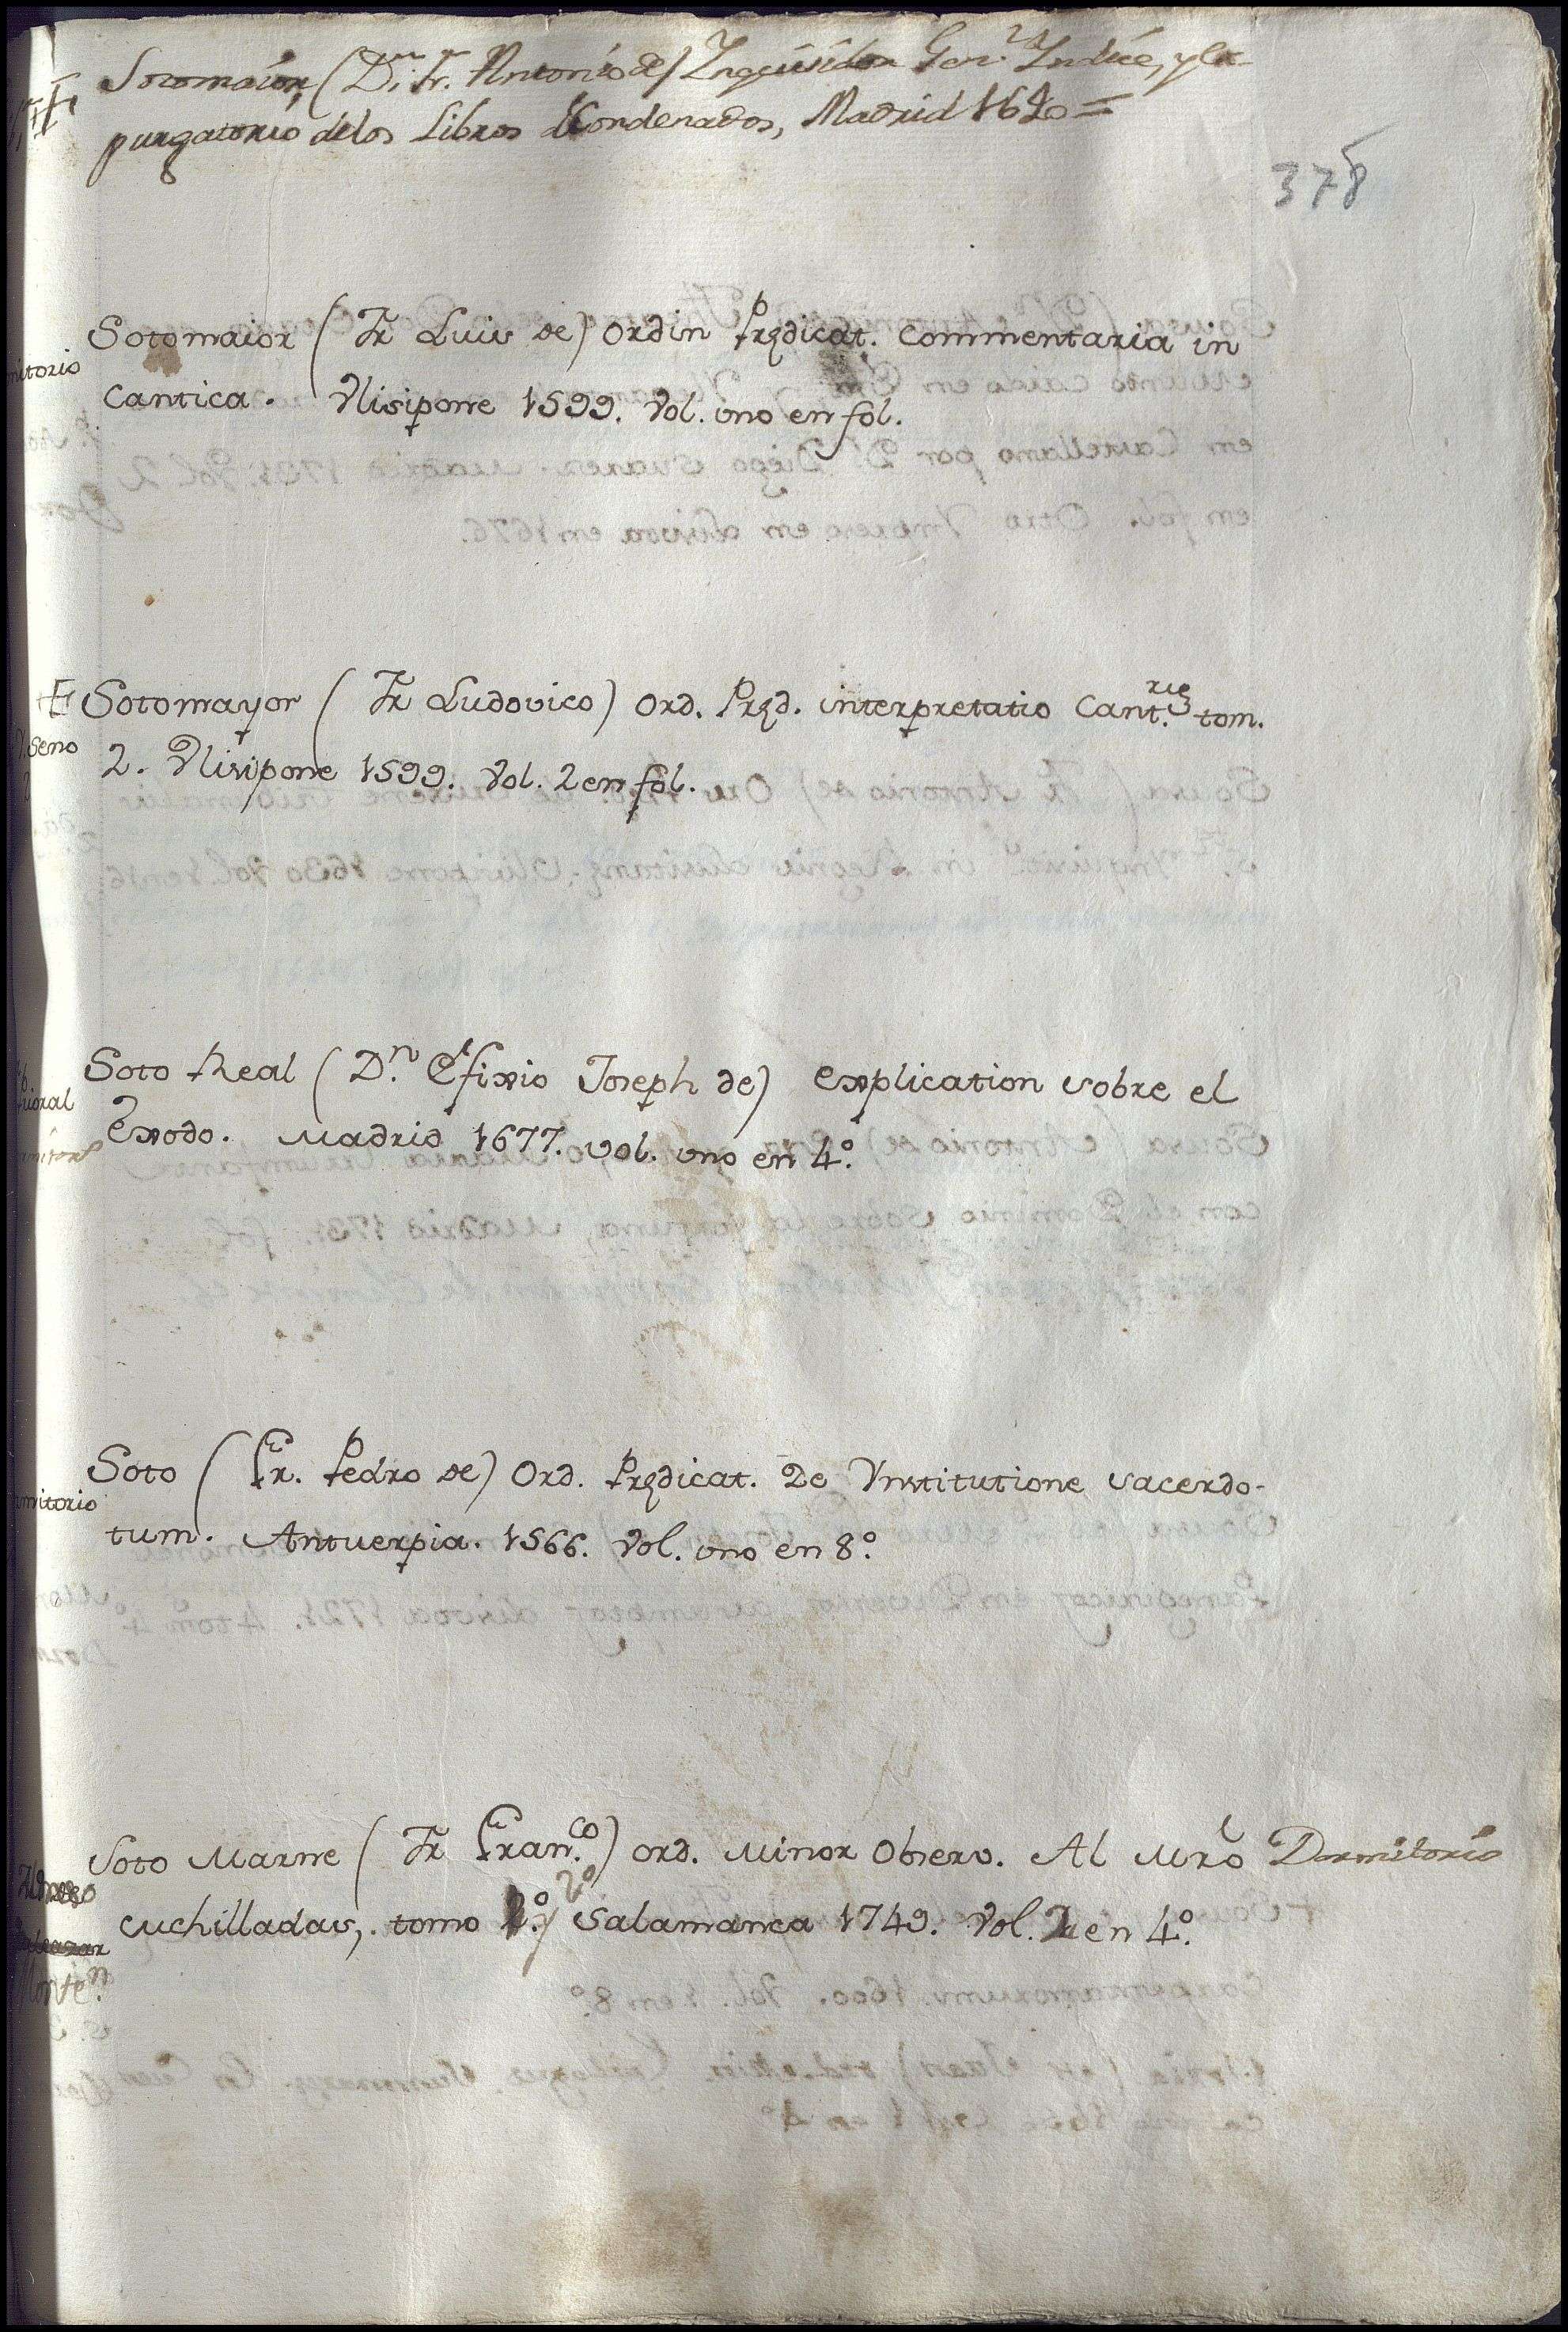 Sotomaior, (D.n Fr. Antonio de) Inquisidor Gen.l Indice, y ex
purgatorio delos Libros Condenados, Madrid 1640=
378
Sotomaior (Fr Luis de) Ordin Prędicat. Commentaria in
Cantica. Vlisipone 1599. Vol. uno en fol.
Sotomayor (Fr Ludovico) Ord. Pręd. interpretatio Cant.rię tom.
2. Vlisipone 1599. Vol. 2 en fol.
Soto Real (D.n Efixio Joseph de) Explication sobre el
Exodo. Madrid 1677. vol. uno en 4.º
Soto (Fr. Pedro de) Ord. Prędicat. De Ynstitutione sacerdo-
tum. Antuerpia. 1566. Vol. uno en 8.º
Soto Marne (Fr Fran.co) Ord. Minor Observ. Al Mrõ Dormitorio
cuchilladas, tomo 1.º y 2º Salamanca 1749. Vol. 2 en 4.º